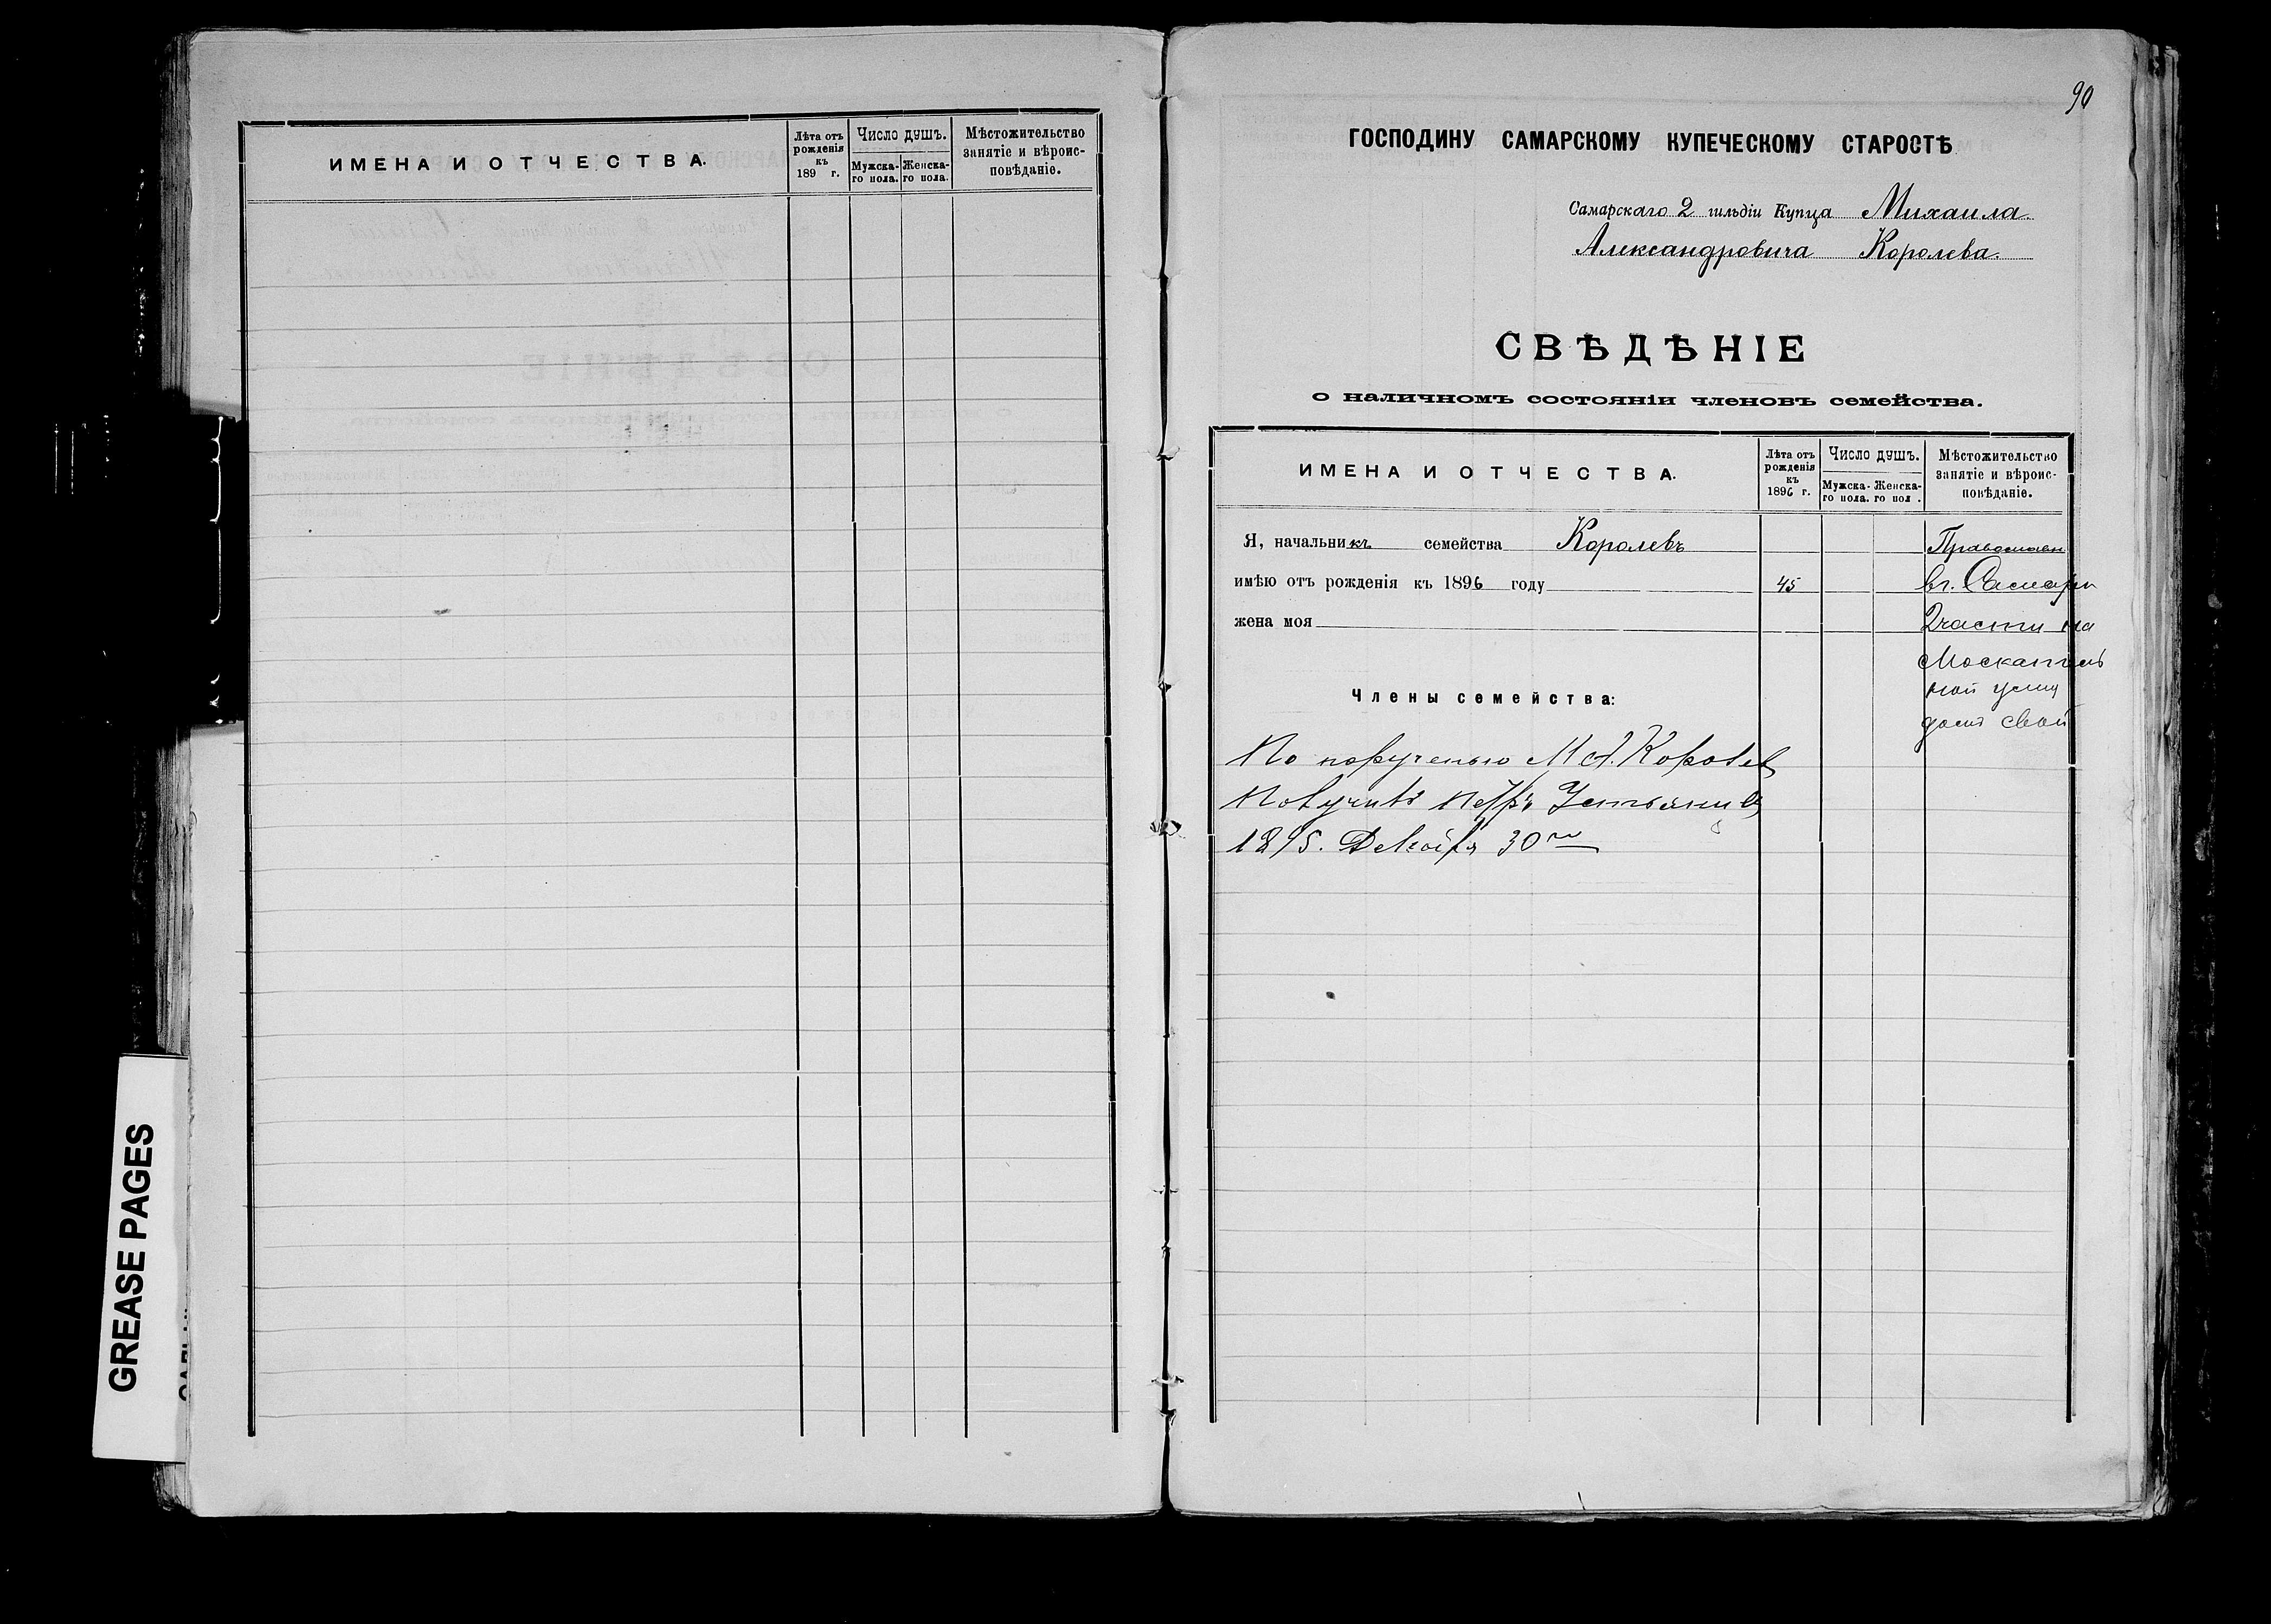 ИМЕНА И ОТЧЕСТВА.
Лѣта отъ рожденія къ 189 г.
Число душъ.
Мужска-го пола.
Женска-го пола.
Мѣстожительство занятіе и вѣроис-повѣданіе.
GREASE PAGES
90
ГОСПОДИНУ САМАРСКОМУ КУПЕЧЕСКОМУ СТАРОСТѢ
Самарскаго 2 гильдіи Купца Михаила
Александровича Королева.
СВѢДѢНІЕ
о наличномъ состояніи членовъ семейства.
ИМЕНА И ОТЧЕСТВА.
Лѣта отъ рожденія къ 1896 г.
Число душъ.
Мужска-го пола.
Женска-го пол .
Мѣстожительство занятіе и вѣроис-повѣданіе.
Я, начальникъ семейства Королевъ
имѣю отъ рожденія къ 1896 году 45
жена моя
Православн
въ г. Самары
2 части на
Москатель
ной улиц
домъ свой
Члены семейства:
По порученью М А. Королев
Получилъ Петръ
1895. Декабря 30го